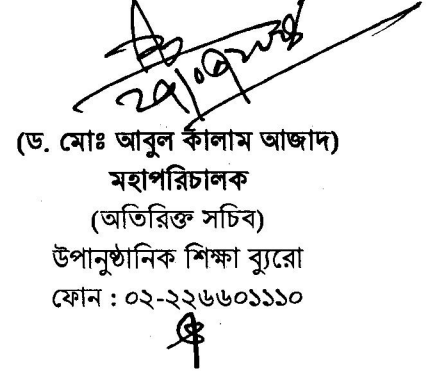 (ড. মোঃ আবুল কালাম আজাদ)
মহাপরিচালক
(অতিরিক্ত সচিব)
উপানুষ্ঠানিক শিক্ষা ব্যুরো
ফোন : ০২-২২৬৬০১১১০